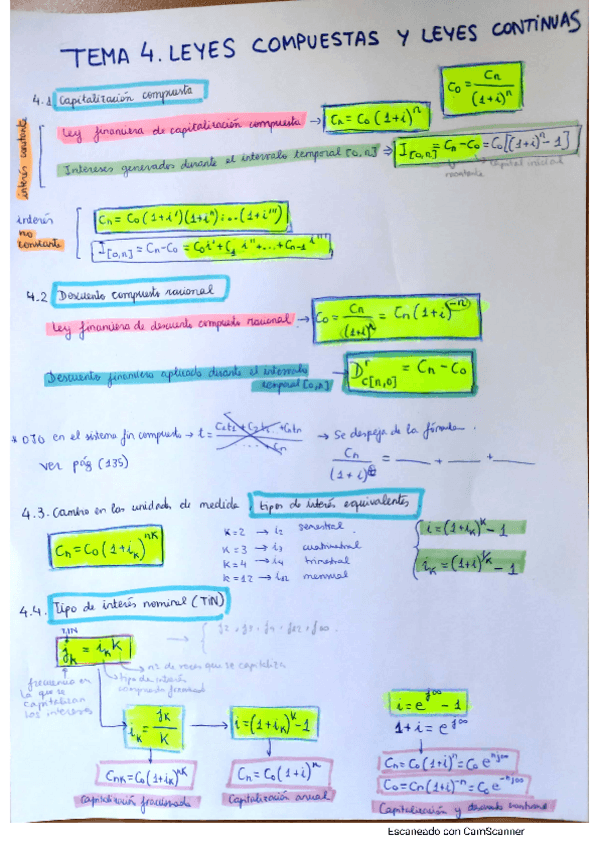 TEMA 4. LEYES COMPUESTAS Y LEYES CONTINUAS
4.1 Capitalización compuesta
C₀ = Cn / (1+i)ⁿ
interés constante
Ley financiera de capitalización compuesta → Cn = C₀ (1+i)ⁿ
Intereses generados durante el intervalo temporal [0,n] ⇒ I[0,n] = Cn - C₀ = C₀[(1+i)ⁿ - 1]
montante
capital inicial
interés no constante
Cn = C₀ (1+i')(1+i'')...(1+i''')
I[0,n] = Cn - C₀ = C₀i' + C₁ i'' + ... + Cn-1 i'''
4.2 Descuento compuesto racional
Ley financiera de descuento compuesto racional → C₀ = Cn / (1+i)ⁿ = Cn (1+i)⁻ⁿ
Descuento financiero aplicado durante el intervalo
temporal [0,n]
Dʳc[n,0] = Cn - C₀
* OJO en el sistema fin compuesto → t = → Se despeja de la fórmula.
ver pág (135)
Cn / (1+i) = ___ + ___ + ___
4.3. Cambio en las unidades de medida tipos de interés equivalentes
Cn = C₀ (1+iK)ⁿᴷ
K=2 → i₂ semestral
K=3 → i₃ cuatrimestral
K=4 → i₄ trimestral
K=12 → i₁₂ mensual
i = (1+iK)ᴷ - 1
iK = (1+i)^(1/K) - 1
4.4. Tipo de interés nominal (TIN)
TIN
jK = iK K
nº de veces que se capitaliza
tipo de interés
compuesto fraccionado
frecuencia en
la que se
capitalizan
los intereses
iK = jK / K
i = (1+iK)ᴷ - 1
i = e^j∞ - 1
1+i = e^j∞
CnK = C₀ (1+iK)ⁿᴷ
Capitalización fraccionada
Cn = C₀ (1+i)ⁿ
Capitalización anual
Cn = C₀ (1+i)ⁿ = C₀ e^nj∞
C₀ = Cn (1+i)⁻ⁿ = C₀ e^-nj∞
Capitalización y descuento continuo
Escaneado con CamScanner